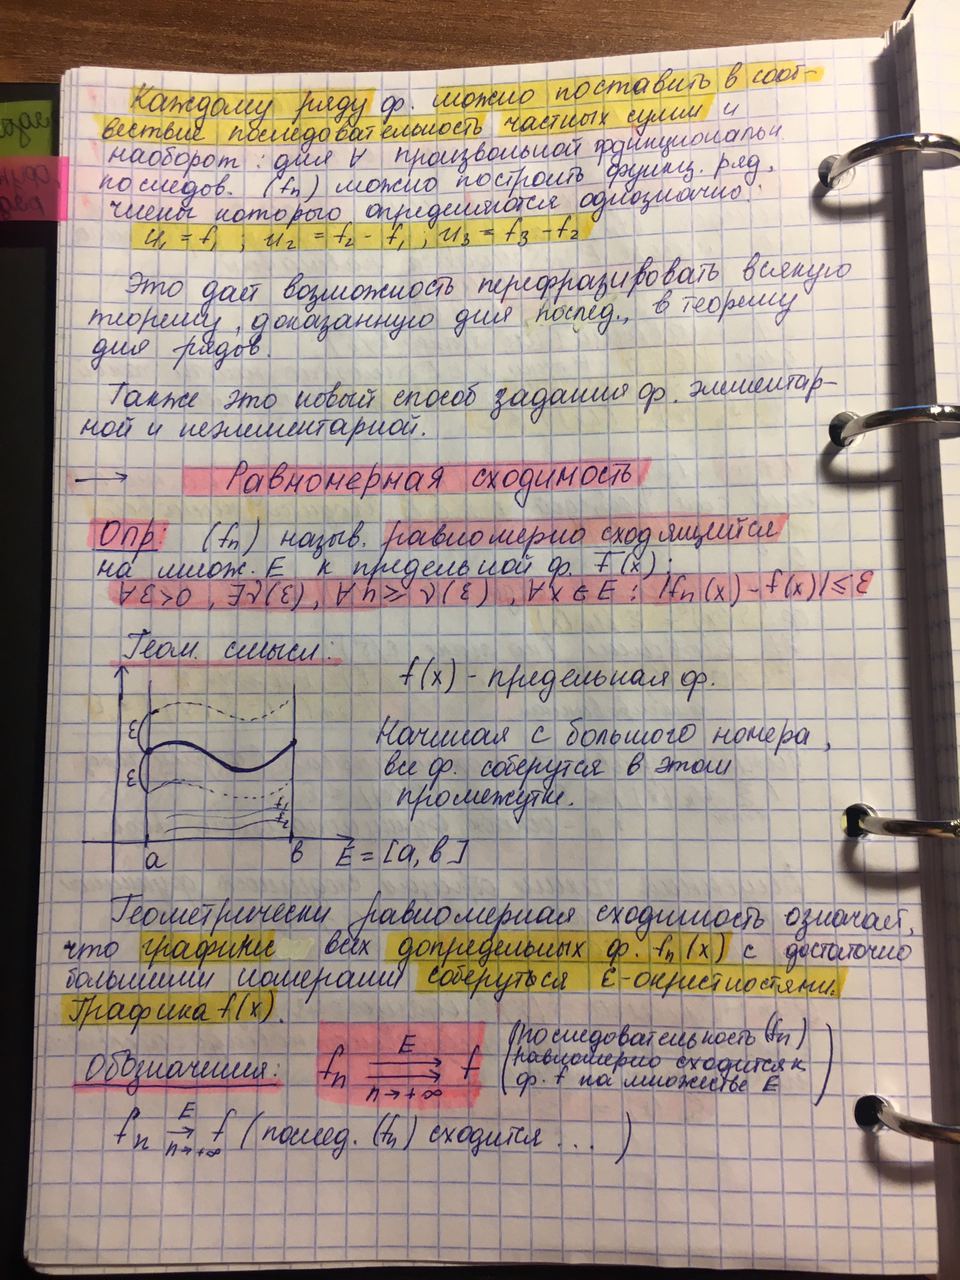 Каждому ряду ф. можно поставить в соот-
вествие последовательность частных сумм и
наоборот: для ∀ произвольной функциональн.
последов. (fn) можно построить функц. ряд,
члены которого определяются однозначно:
u₁ = f₁ ; u₂ = f₂ - f₁ ; u₃ = f₃ - f₂
Это дает возможность перефразировать всякую
теорему, доказанную для послед., в теорему
для рядов.
Также это новый способ задания ф. элементар-
ной и неэлементарной.
→ Равномерная сходимость
Опр: (fn) назыв. равномерно сходящейся
на множ. E к предельной ф. f(x):
∀ε>0, ∃N(ε), ∀n≥N(ε), ∀x∈E : |fn(x) - f(x)|≤ε
Геом. смысл:
f(x) - предельная ф.
Начиная с большого номера,
все ф. соберутся в этом
промежутке.
ε
ε
f₁
f₂
a
b
E = [a, b]
Геометрически равномерная сходимость означает,
что графики всех допредельных ф. fn(x) с достаточно
большими номерами соберуться ε-окрестностями.
Графика f(x).
Обозначения: fn E ⇉ n→+∞ f (последовательность (fn)
равномерно сходится к
ф. f на множестве E)
fn E → n→+∞ f (послед. (fn) сходится ...)